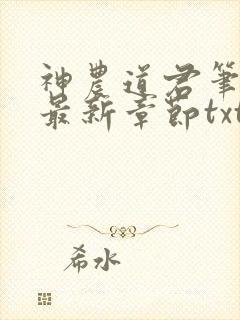 神農道君筆
最新章節txt
希水